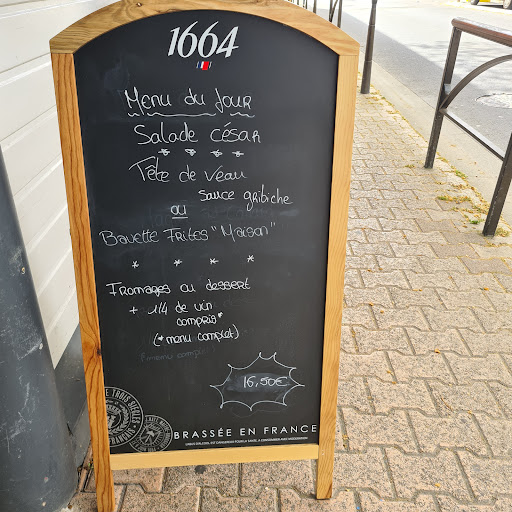 1664
Menu du Jour
Salade césar
Tête de veau
sauce gribiche
ou
Bavette Frites "Maison"
Fromages ou dessert
+ 1/4 de vin
compris*
(*menu complet)
16,50€
BRASSÉE EN FRANCE